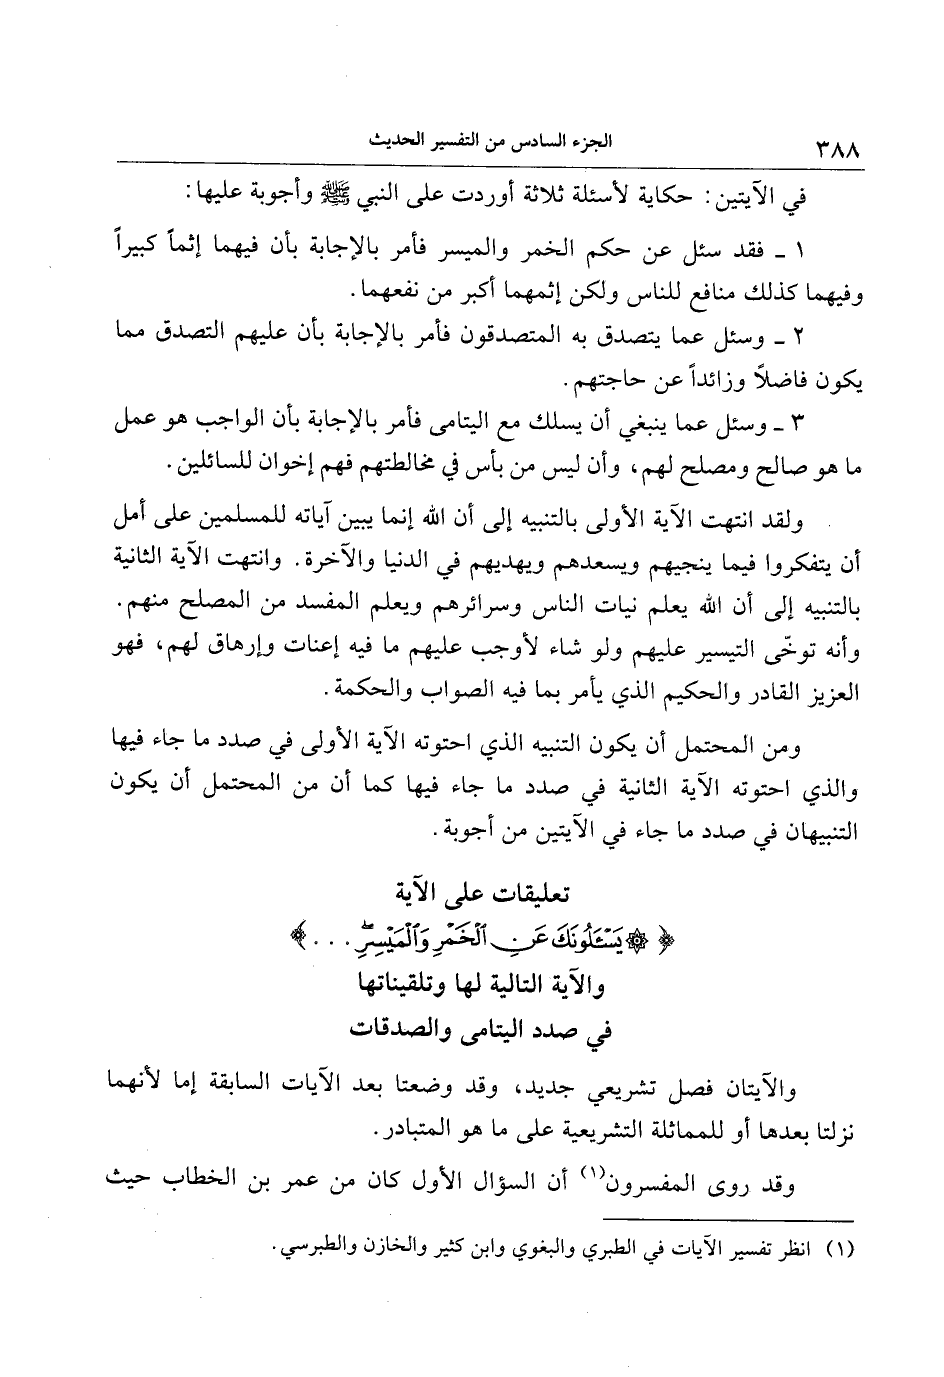 الجزء السادس من التفسير الحديث
٣٨٨
في الآيتين: حكاية لأسئلة ثلاثة أوردت على النبي ﷺ وأجوبة عليها:
١ ـ فقد سئل عن حكم الخمر والميسر فأمر بالإجابة بأن فيهما إثماً كبيراً
وفيهما كذلك منافع للناس ولكن إثمهما أكبر من نفعهما.
٢ ـ وسئل عما يتصدق به المتصدقون فأمر بالإجابة بأن عليهم التصدق مما
يكون فاضلاً وزائداً عن حاجتهم.
٣ ـ وسئل عما ينبغي أن يسلك مع اليتامى فأمر بالإجابة بأن الواجب هو عمل
ما هو صالح ومصلح لهم، وأن ليس من بأس في مخالطتهم فهم إخوان للسائلين.
ولقد انتهت الآية الأولى بالتنبيه إلى أن الله إنما يبين آياته للمسلمين على أمل
أن يتفكروا فيما ينجيهم ويسعدهم ويهديهم في الدنيا والآخرة. وانتهت الآية الثانية
بالتنبيه إلى أن الله يعلم نيات الناس وسرائرهم ويعلم المفسد من المصلح منهم.
وأنه توخّى التيسير عليهم ولو شاء لأوجب عليهم ما فيه إعنات وإرهاق لهم، فهو
العزيز القادر والحكيم الذي يأمر بما فيه الصواب والحكمة.
ومن المحتمل أن يكون التنبيه الذي احتوته الآية الأولى في صدد ما جاء فيها
والذي احتوته الآية الثانية في صدد ما جاء فيها كما أن من المحتمل أن يكون
التنبيهان في صدد ما جاء في الآيتين من أجوبة.
تعليقات على الآية
﴿ ۞ يَسْـَٔلُونَكَ عَنِ ٱلْخَمْرِ وَٱلْمَيْسِرِۖ . . . ﴾
والآية التالية لها وتلقيناتها
في صدد اليتامى والصدقات
والآيتان فصل تشريعي جديد، وقد وضعتا بعد الآيات السابقة إما لأنهما
نزلتا بعدها أو للمماثلة التشريعية على ما هو المتبادر.
وقد روى المفسرون(١) أن السؤال الأول كان من عمر بن الخطاب حيث
(١) انظر تفسير الآيات في الطبري والبغوي وابن كثير والخازن والطبرسي.